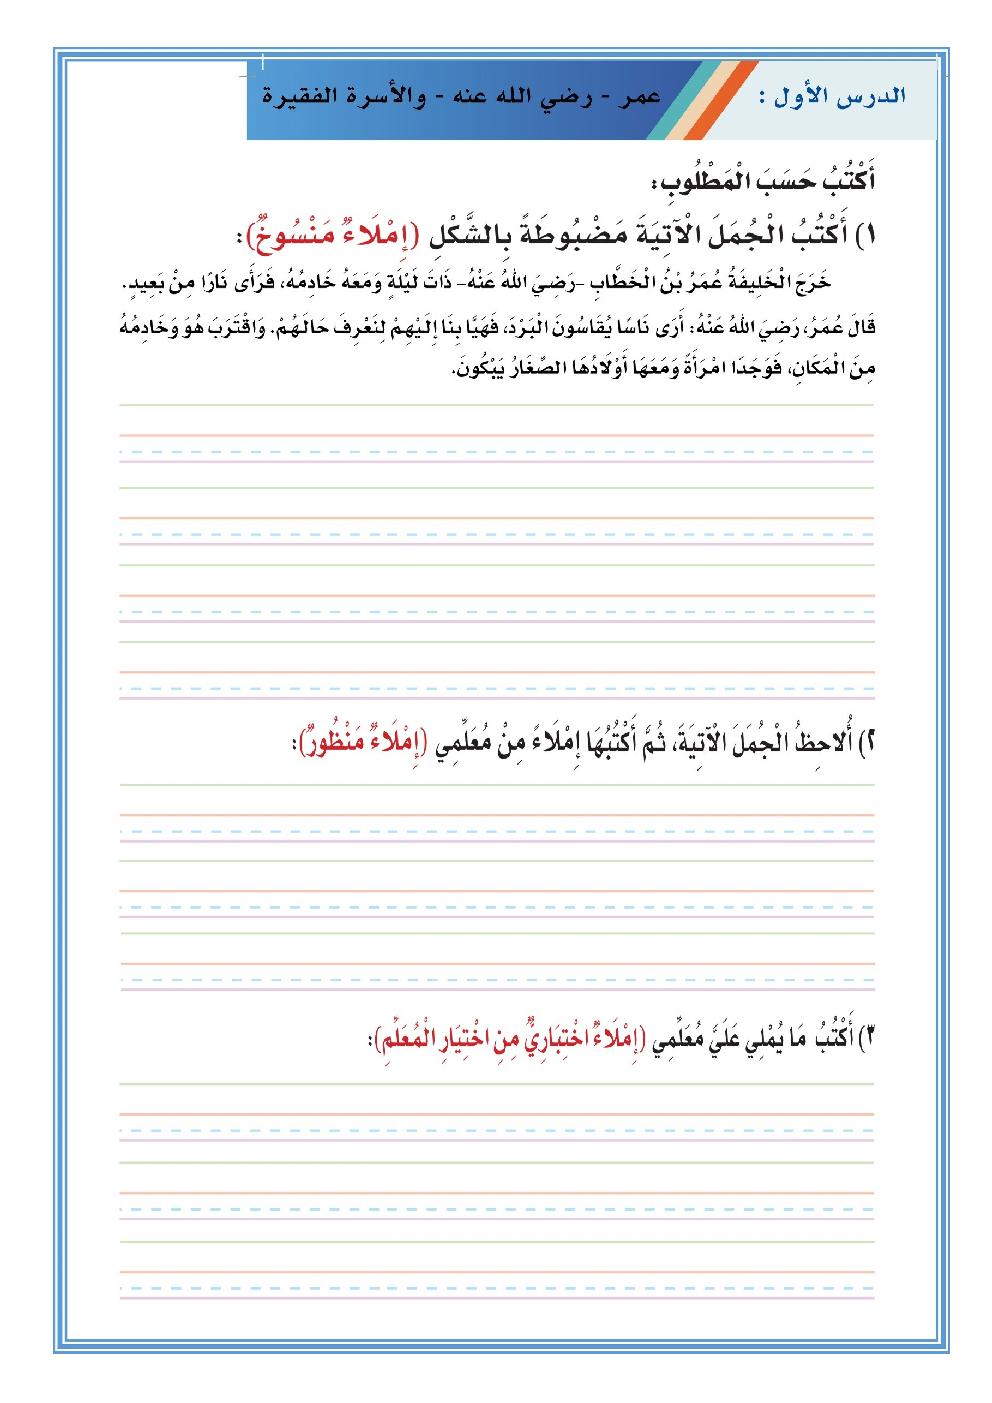 الدرس الأول : عمر - رضي الله عنه - والأسرة الفقيرة
أَكْتُبُ حَسَبَ الْمَطْلُوبِ:
١) أَكْتُبُ الْجُمَلَ الْآتِيَةَ مَضْبُوطَةً بِالشَّكْلِ (إِمْلَاءٌ مَنْسُوخٌ):
خَرَجَ الْخَلِيفَةُ عُمَرُ بْنُ الْخَطَّابِ –رَضِيَ اللهُ عَنْهُ– ذَاتَ لَيْلَةٍ وَمَعَهُ خَادِمُهُ، فَرَأَى نَارًا مِنْ بَعِيدٍ.
قَالَ عُمَرُ، رَضِيَ اللهُ عَنْهُ: أَرَى نَاسًا يُقَاسُونَ الْبَرْدَ، فَهَيَّا بِنَا إِلَيْهِمْ لِنَعْرِفَ حَالَهُمْ. وَاقْتَرَبَ هُوَ وَخَادِمُهُ
مِنَ الْمَكَانِ، فَوَجَدَا امْرَأَةً وَمَعَهَا أَوْلَادُهَا الصِّغَارُ يَبْكُونَ.
٢) أُلاحِظُ الْجُمَلَ الْآتِيَةَ، ثُمَّ أَكْتُبُهَا إِمْلَاءً مِنْ مُعَلِّمِي (إِمْلَاءٌ مَنْظُورٌ):
٣) أَكْتُبُ مَا يُمْلِي عَلَيَّ مُعَلِّمِي (إِمْلَاءٌ اخْتِبَارِيٌّ مِنِ اخْتِيَارِ الْمُعَلِّمِ):